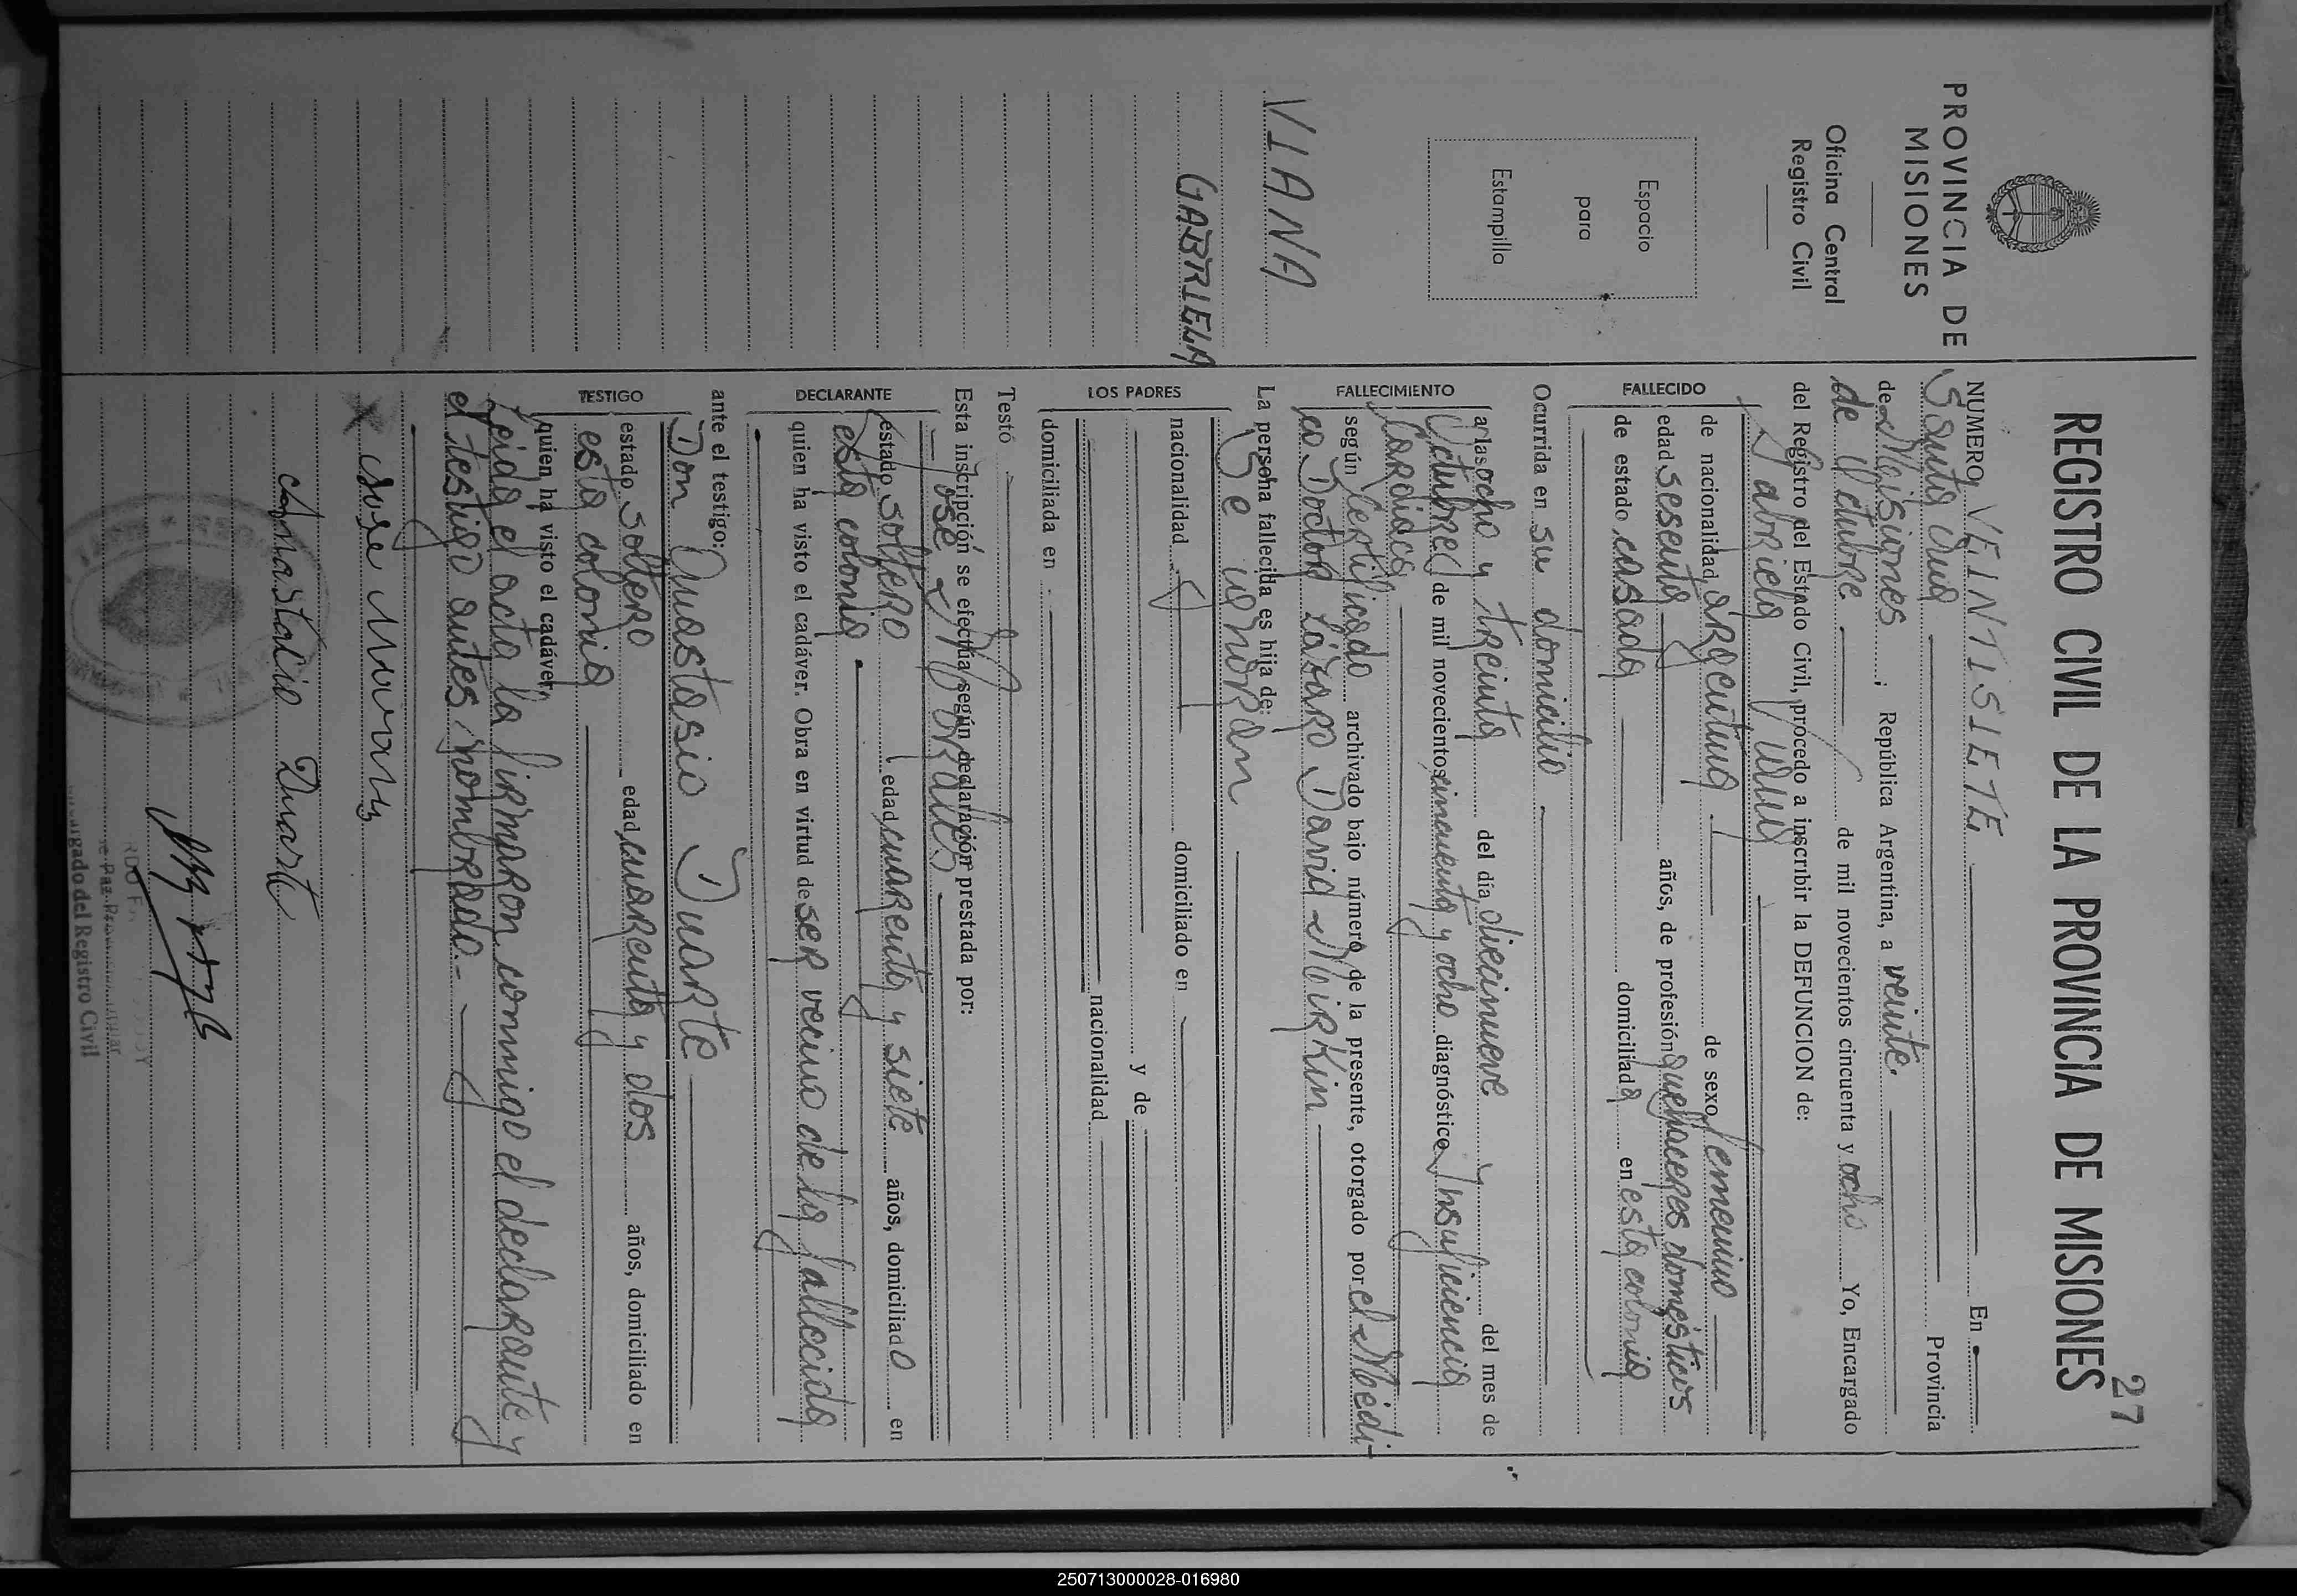 27
REGISTRO CIVIL DE LA PROVINCIA DE MISIONES
PROVINCIA DE
MISIONES
Oficina Central
Registro Civil
Espacio
para
Estampilla
VIANA
GABRIELA
NUMERO VEINTISIETE En
Santa Ana Provincia
de Misiones ; República Argentina, a veinte.
de Octubre de mil novecientos cincuenta y ocho Yo, Encargado
del Registro del Estado Civil, procedo a inscribir la DEFUNCION de:
FALLECIDO
Gabriela Viana
de nacionalidad argentina de sexo femenino
edad sesenta años, de profesión quehaceres domésticos
de estado casada domiciliada en esta colonia
Ocurrida en su domicilio
FALLECIMIENTO
a las ocho y treinta del día diecinueve del mes de
Octubre de mil novecientos cincuenta y ocho diagnóstico Insuficiencia
Cardiaca
según Certificado archivado bajo número de la presente, otorgado por el Médi-
co Doctor Lázaro David Meirkin
La persona fallecida es hija de:
Se ignoran
LOS PADRES
nacionalidad domiciliado en
y de
nacionalidad
domiciliada en
Testó
Esta inscripción se efectúa según declaración prestada por:
DECLARANTE
José Morales
estado soltero edad cuarenta y siete años, domiciliado en
esta colonia.
quien ha visto el cadáver. Obra en virtud de ser vecino de la fallecida
ante el testigo:
TESTIGO
Don Anastasio Duarte
estado soltero edad cuarenta y dos años, domiciliado en
esta colonia
quien ha visto el cadáver,
Leida el acta la firmaron conmigo el declarante y
el testigo antes nombrado.-
x José
Anastacio Duarte
Encargado del Registro Civil
250713000028-016980